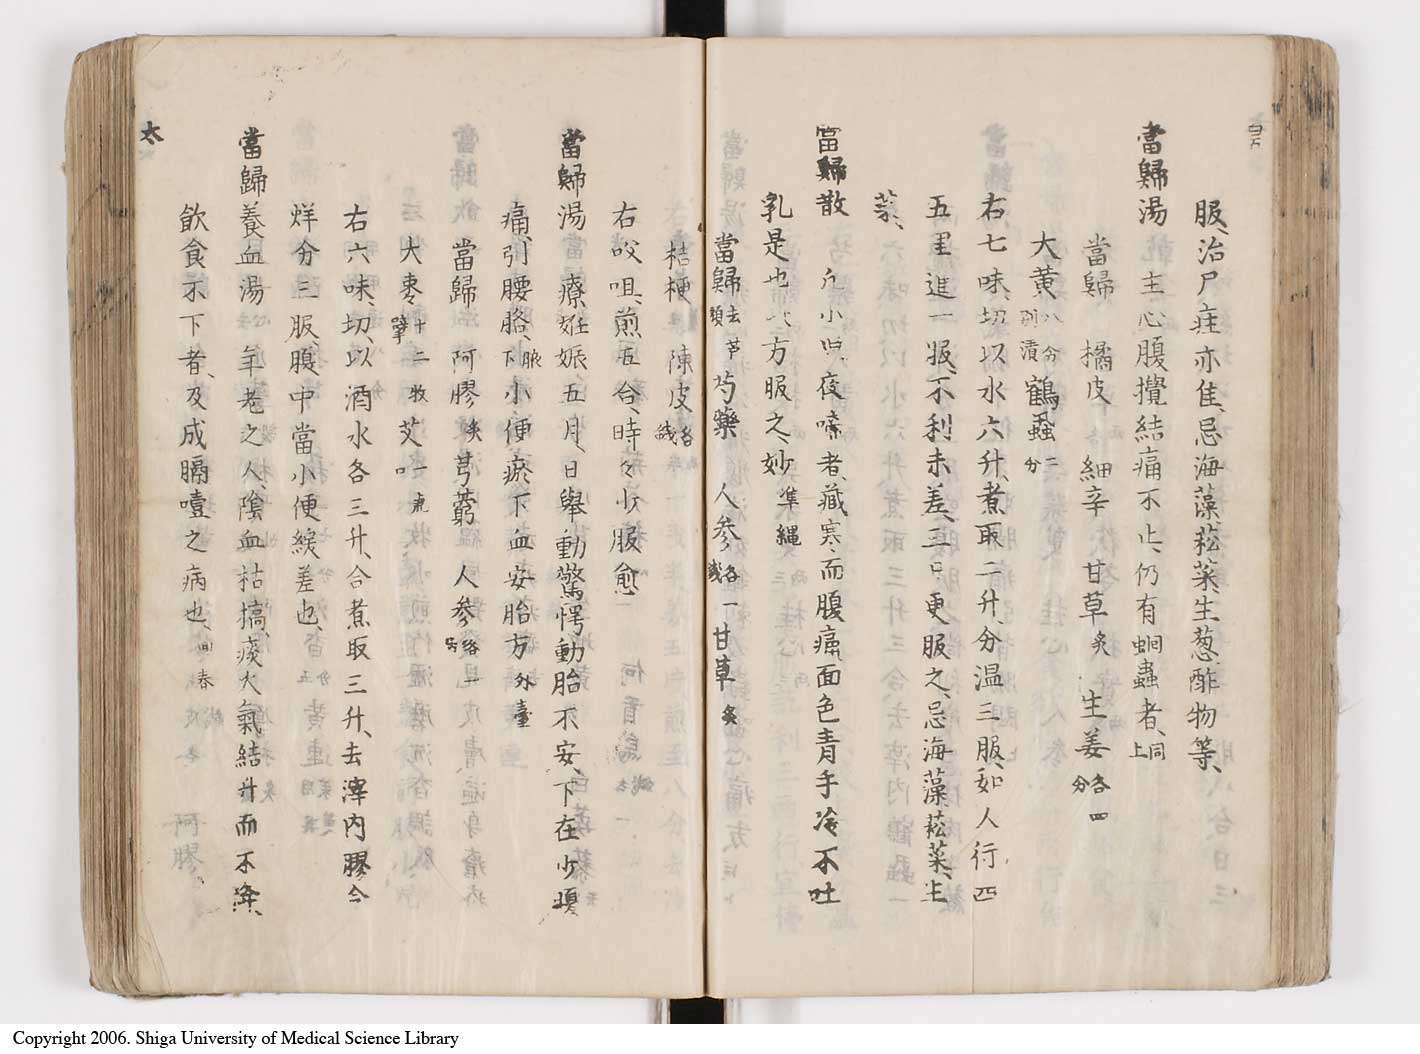 服、治尸疰亦隹、忌海藻菘菜、生葱、酢物等、
當歸湯 主心腹攪結痛不止、仍有蛔蟲者、同上
當歸 橘皮 細辛 甘草炙 生姜各四分
大黄八分別漬 鶴蝨二分
右七味、切、以水六升、煮取二升、分温三服、如人行四
五里進一服、不利未差、三日更服之、忌海藻、菘菜、生
菜、
當歸散 凡小児、夜啼者、藏寒而腹痛、面色青手冷不吐
乳是也、此方服之、妙 準縄
當歸去芦頭 芍藥 人参各一錢 甘草炙
桔梗 陳皮各錢
右㕮咀、煎五合、時々少服愈
當歸湯 療姙娠五月、日舉動驚愕動胎不安、下在少腹
痛、引腰胳、小便瘀、下血安胎方 外臺
當歸 阿膠炙 芎藭 人参各一
大棗十二枚擘 艾一
右六味、切、以酒水各三升、合煮取三升、去滓内膠令
烊分三服、腹中當小便緩差也、
當歸養血湯 年老之人、陰血枯搞、痰火氣結升而不降、
飲食不下者、及成膈噎之病也、回春
太
Copyright 2006. Shiga University of Medical Science Library